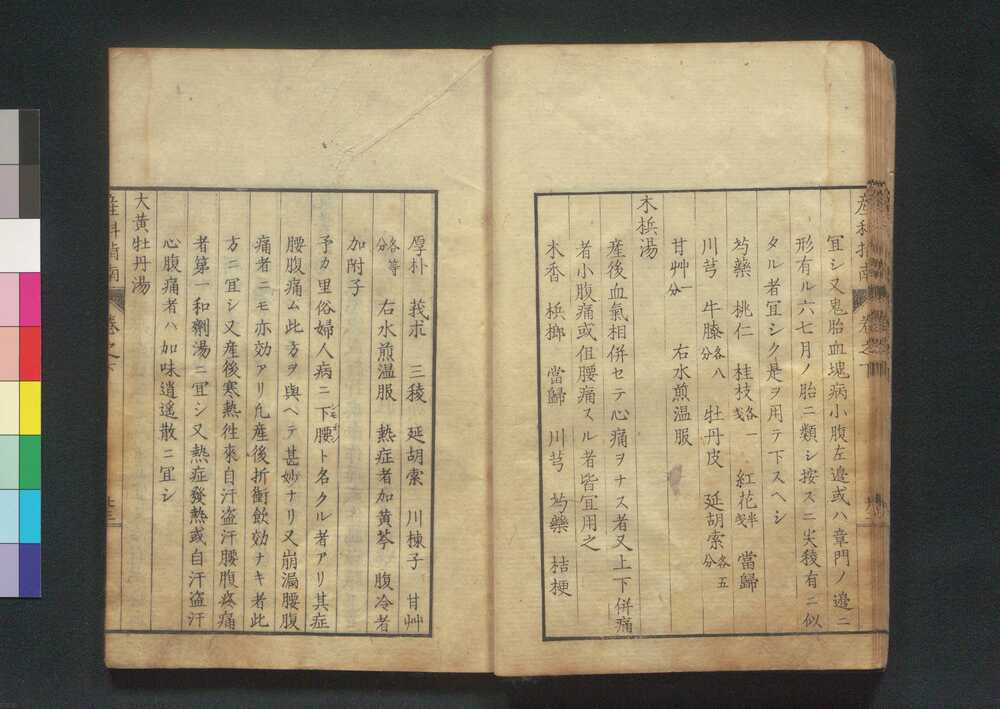 宜シ又鬼胎血塊病小腹左邉或ハ章門ノ邉ニ
形有ル六七月ノ胎ニ類シ按スニ尖稜有ニ似
タル者宜シク是ヲ用テ下スヘシ
芍藥 桃仁 桂枝各一戔 紅花半戔 當歸
川芎 牛膝各八分 牡丹皮 延胡索各五分
甘艸一分 右水煎温服
木梹湯
産後血氣相併セテ心痛ヲナス者又上下併痛
者小腹痛或伹腰痛スル者皆宜用之
木香 梹榔 當歸 川芎 芍藥 桔梗
厚朴 莪朮 三稜 延胡索 川楝子 甘艸
各等分 右水煎温服 熱症者加黄芩 腹冷者
加附子
予カ里俗婦人病ニ下腰ト名クル者アリ其症
腰腹痛ム此方ヲ與ヘテ甚妙ナリ又崩漏腰腹
痛者ニモ亦効アリ凢産後折衝飲効ナキ者此
方ニ宜シ又産後寒熱徃來自汗盗汗腰腹疼痛
者第一和劑湯ニ宜シ又熱症發熱或自汗盗汗
心腹痛者ハ加味逍遥散ニ宜シ
大黄牡丹湯
産科指南 卷之下